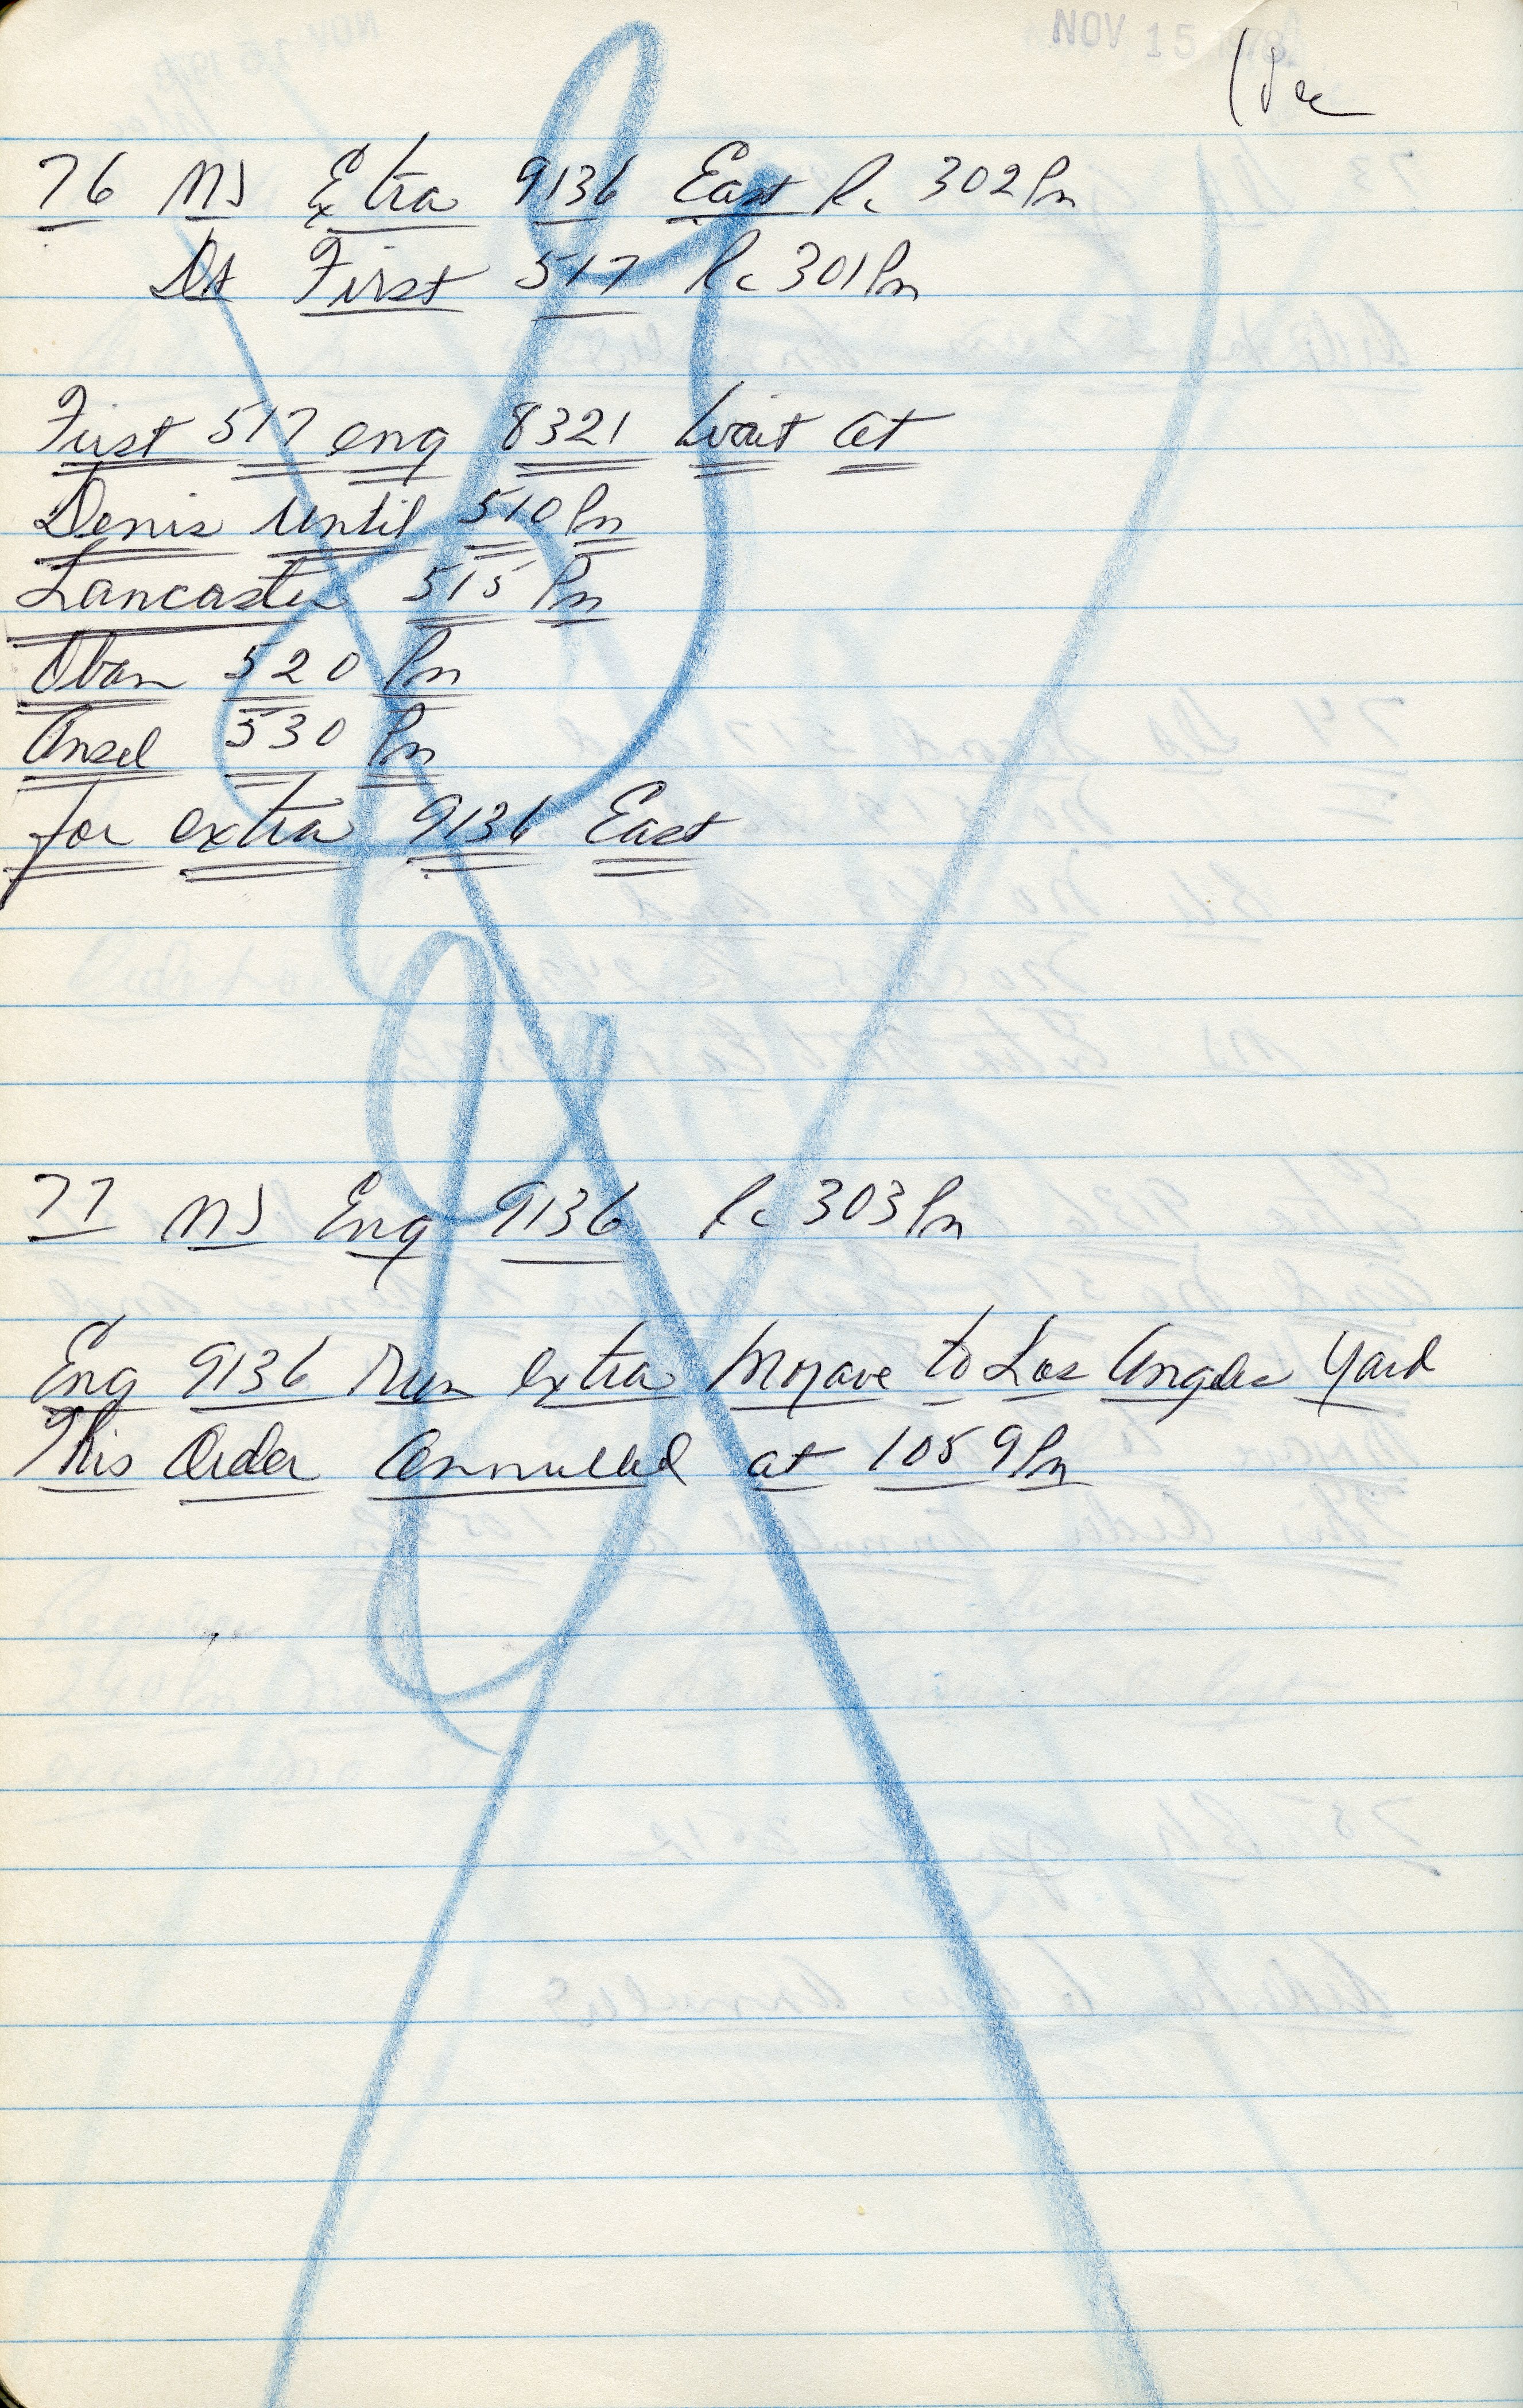 NOV 15 1978
76 MJ Extra 9136 East Rc 302 Pm
First 517 Rc 301 Pm
First 517 eng 8321 Wait at
Denis Until 510 Pm
Lancaster 515 Pm
Oban 520 Pm
Ansel 530 Pm
for extra 9136 East
77 MJ Eng 9136 Rc 303 Pm
Eng 9136 Run extra Mojave to Los Angeles Yard
This Order Annulled at 1059 Pm